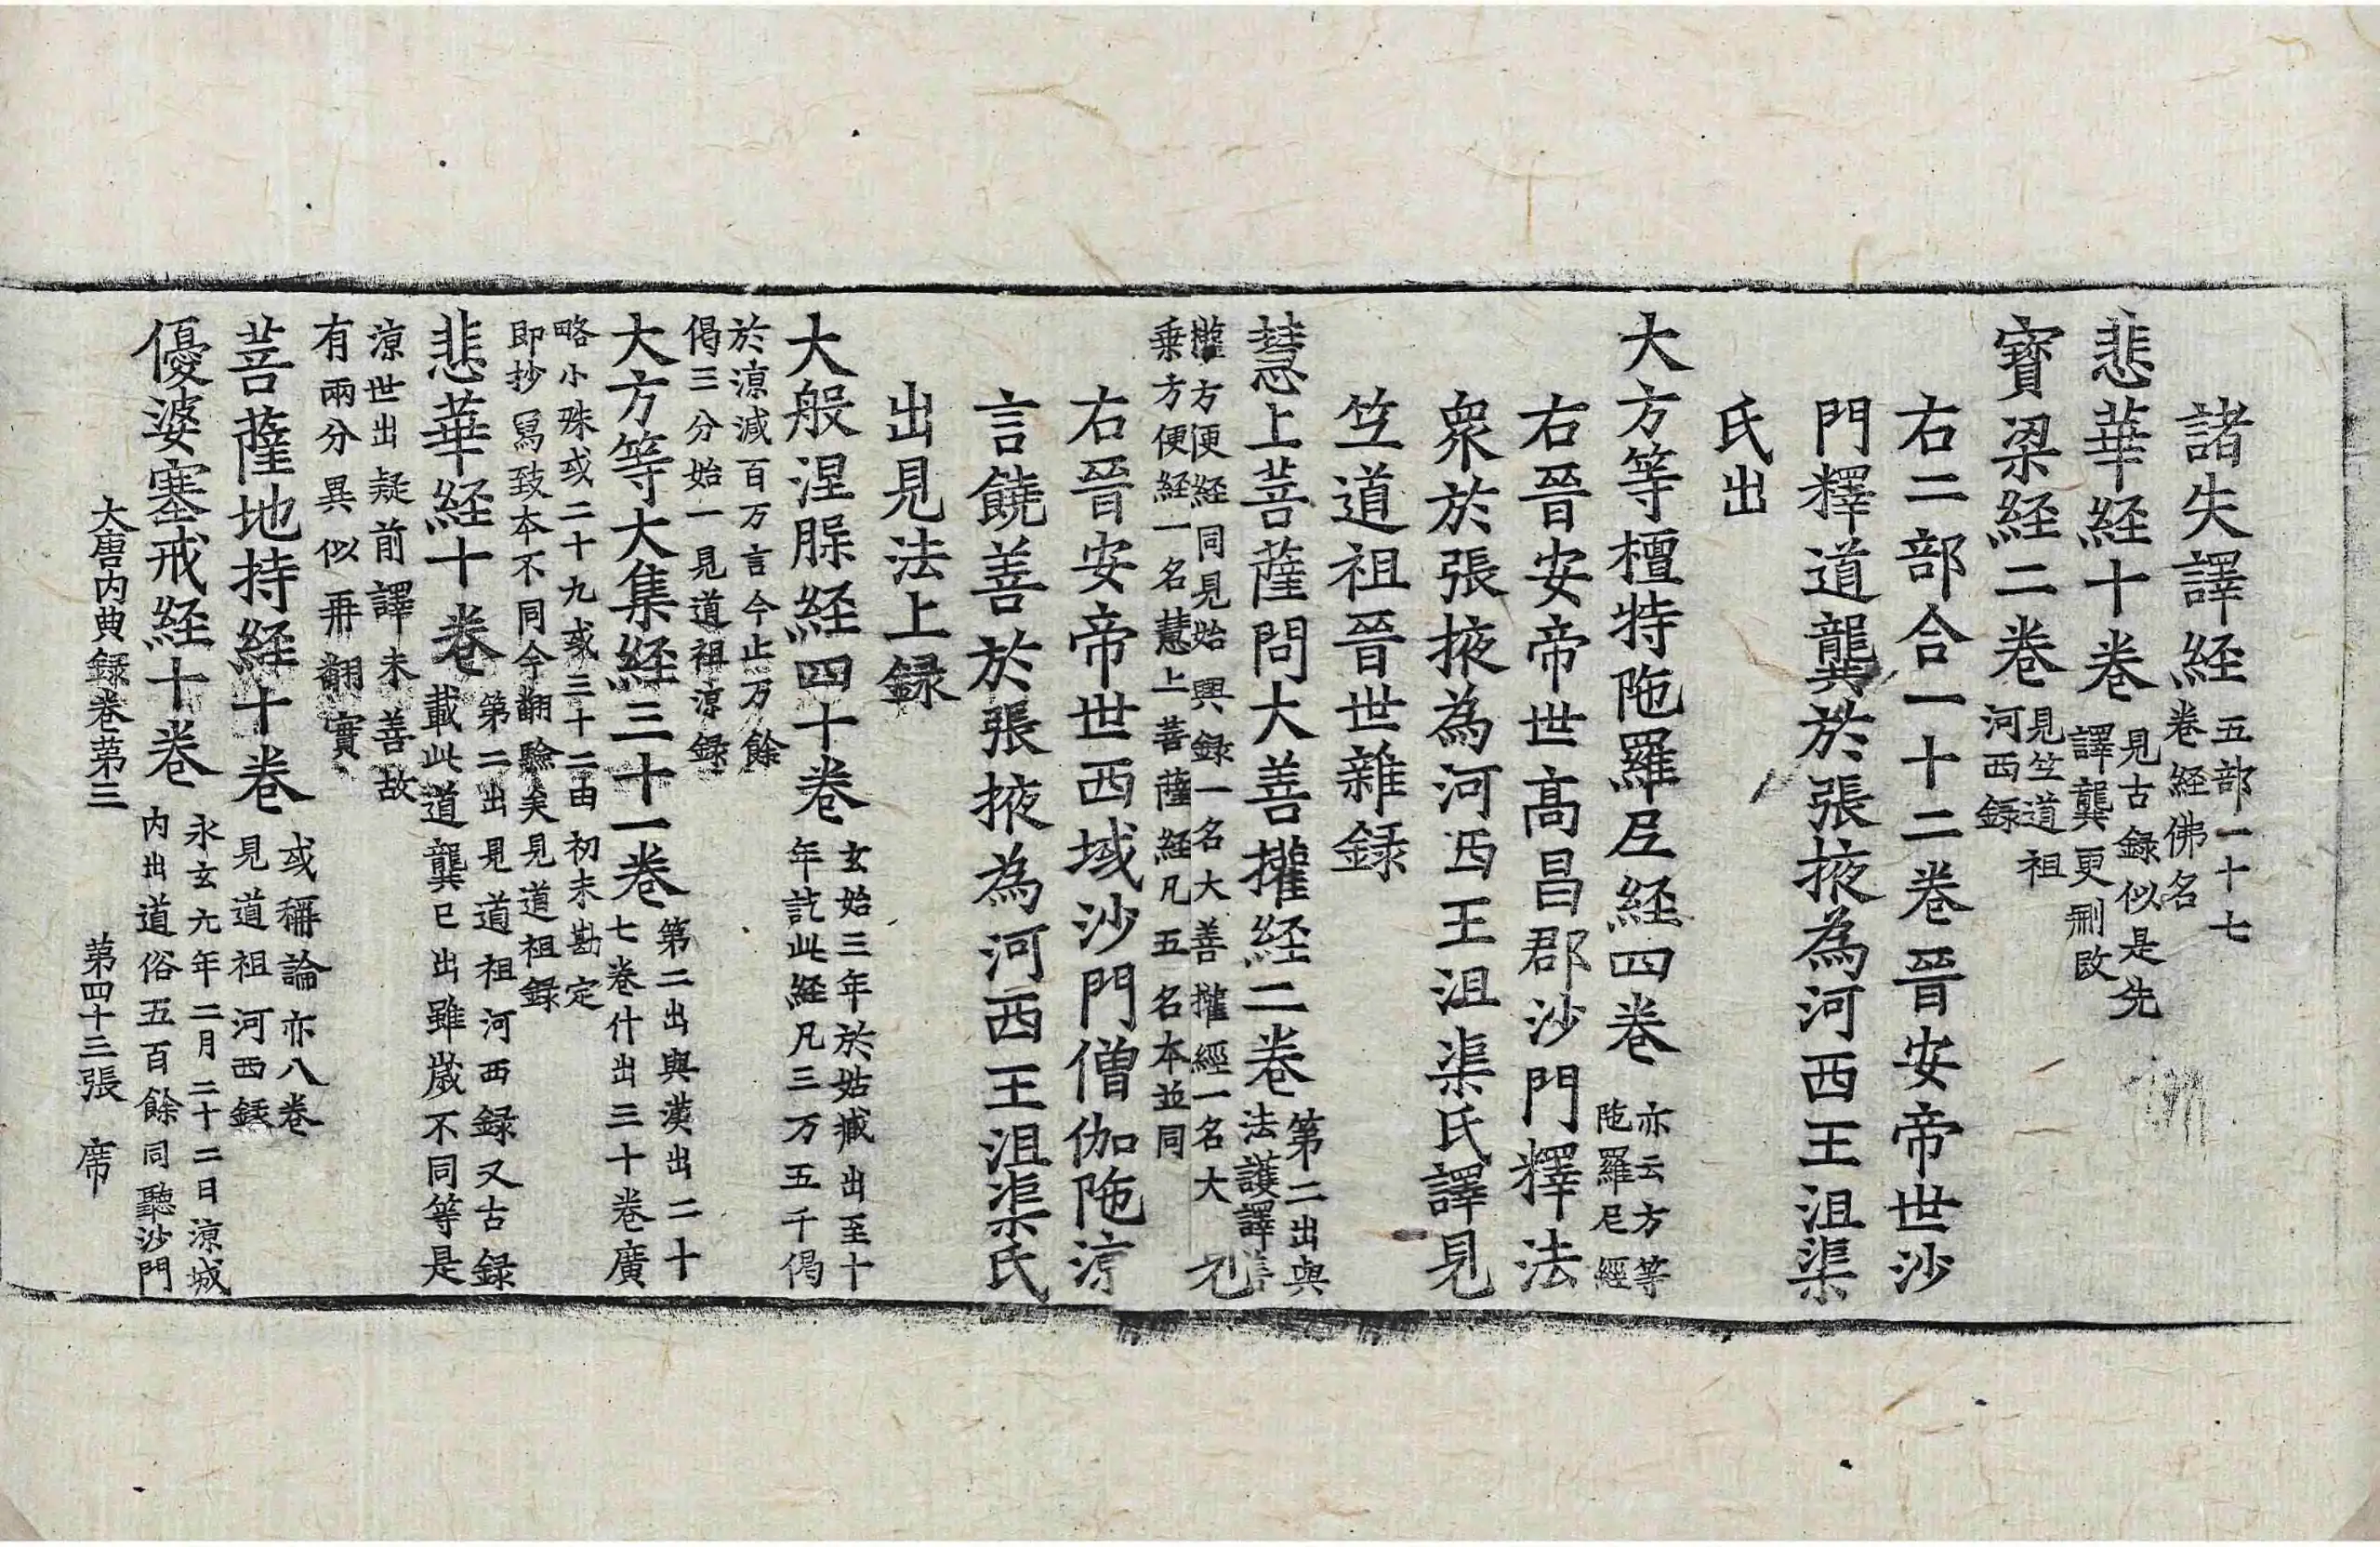 諸失譯経五部一十七卷経佛名
悲華経十卷見古録似是先譯龔更刪改
寶梁経二卷見竺道祖河西録
右二部合一十二卷晉安帝世沙
門釋道龔於張掖為河西王沮渠
氏出
大方等檀特陁羅尼経四卷亦云方等陁羅尼經
右晉安帝世髙昌郡沙門釋法
衆於張掖為河西王沮渠氏譯見
竺道祖晉世雜録
慧上菩薩問大善㩲経二卷第二出與法護譯善
㩲方便経同見始興録一名大善㩲經一名大
乗方便経一名慧上菩薩経凡五名本並同
右晉安帝世西域沙門僧伽陁涼
言饒善於張掖為河西王沮渠氏
出見法上録
大般涅槃経四十卷玄始三年於姑臧出至十年訖此経凡三万五千偈
於涼減百万言今止万餘
偈三分始一見道祖涼録
大方等大集経三十一卷第二出與漢出二十七卷什出三十卷廣
略小殊或二十九或三十二由初未勘定
即抄冩致本不同今翻驗矣見道祖録
悲華経十卷第二出見道祖河西録又古録載此道龔已出雖歳不同等是
涼世出疑前譯未善故
有兩分異似再翻實
菩薩地持経十卷或稱論亦八卷見道祖河西録
優婆塞戒経十卷永玄九年二月二十二日涼城内出道俗五百餘同聽沙門
大唐内典録卷第三　第四十三張　席